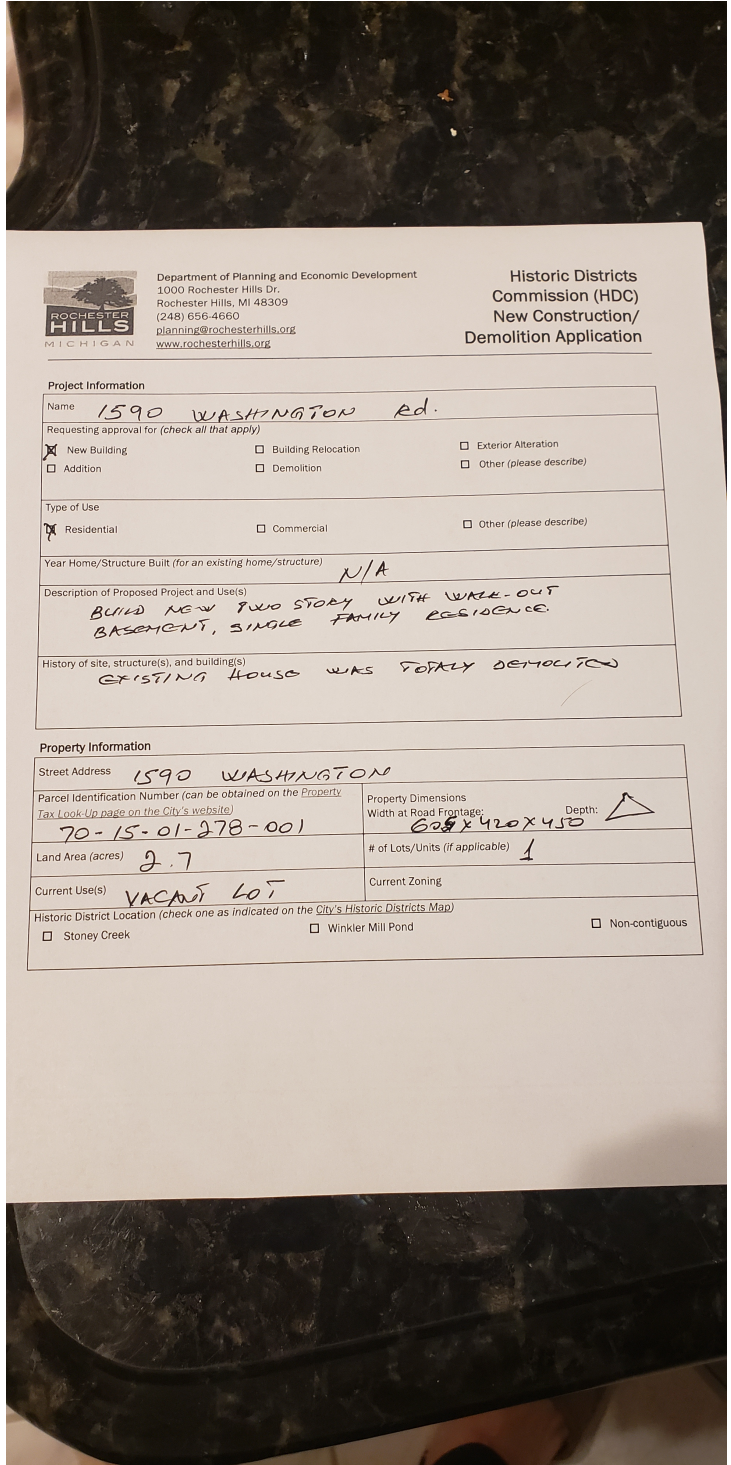 ROCHESTER
HILLS
MICHIGAN
Department of Planning and Economic Development
1000 Rochester Hills Dr.
Rochester Hills, MI 48309
(248) 656-4660
planning@rochesterhills.org
www.rochesterhills.org
Historic Districts
Commission (HDC)
New Construction/
Demolition Application
Project Information
Name 1590 WASHINGTON Rd.
Requesting approval for (check all that apply)
New Building Building Relocation Exterior Alteration
Addition Demolition Other (please describe)
Type of Use
Residential Commercial Other (please describe)
Year Home/Structure Built (for an existing home/structure) N/A
Description of Proposed Project and Use(s)
BUILD NEW TWO STORY WITH WALK-OUT
BASEMENT, SINGLE FAMILY RESIDENCE.
History of site, structure(s), and building(s)
EXISTING HOUSE WAS TOTALY DEMOLITED
Property Information
Street Address 1590 WASHINGTON
Parcel Identification Number (can be obtained on the Property
Tax Look-Up page on the City's website)
70-15-01-278-001
Property Dimensions
Width at Road Frontage: Depth:
x 420 x 450
Land Area (acres) 2.7
# of Lots/Units (if applicable) 1
Current Use(s) VACANT LOT
Current Zoning
Historic District Location (check one as indicated on the City's Historic Districts Map)
Stoney Creek Winkler Mill Pond Non-contiguous